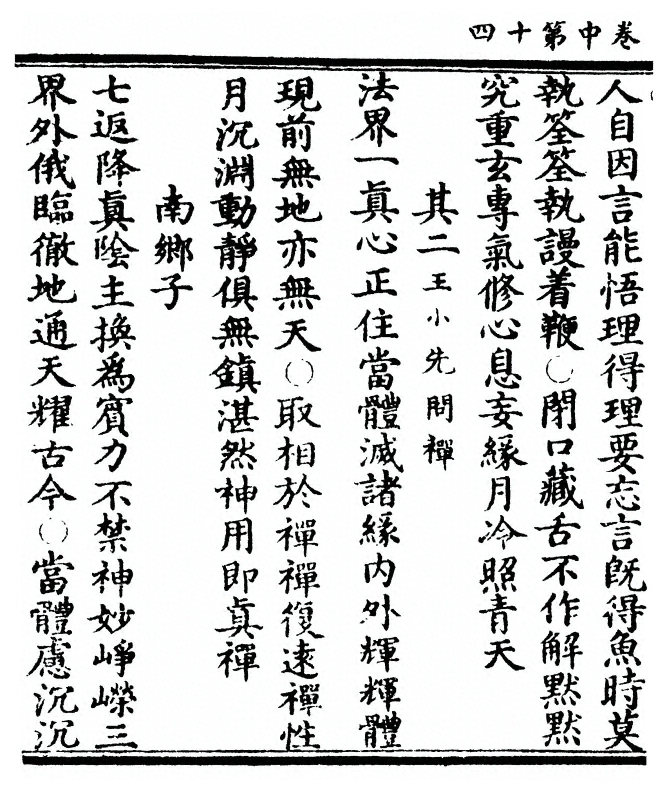 卷中第十四
人自因言能悟理得理要忘言旣得魚時莫
執筌筌執謾着鞭〇閉口藏舌不作解默默
究重玄專氣修心息妄緣月冷照青天
其二王小先問禪
法界一眞心正住當體滅諸緣內外輝輝體
現前無地亦無天〇取相於禪禪復遠禪性
月沉淵動靜俱無鎮湛然神用即眞禪
南鄉子
七返降眞陰主換爲賓力不禁神妙崢嶸三
界外俄臨徹地通天耀古今〇當體慮沉沉